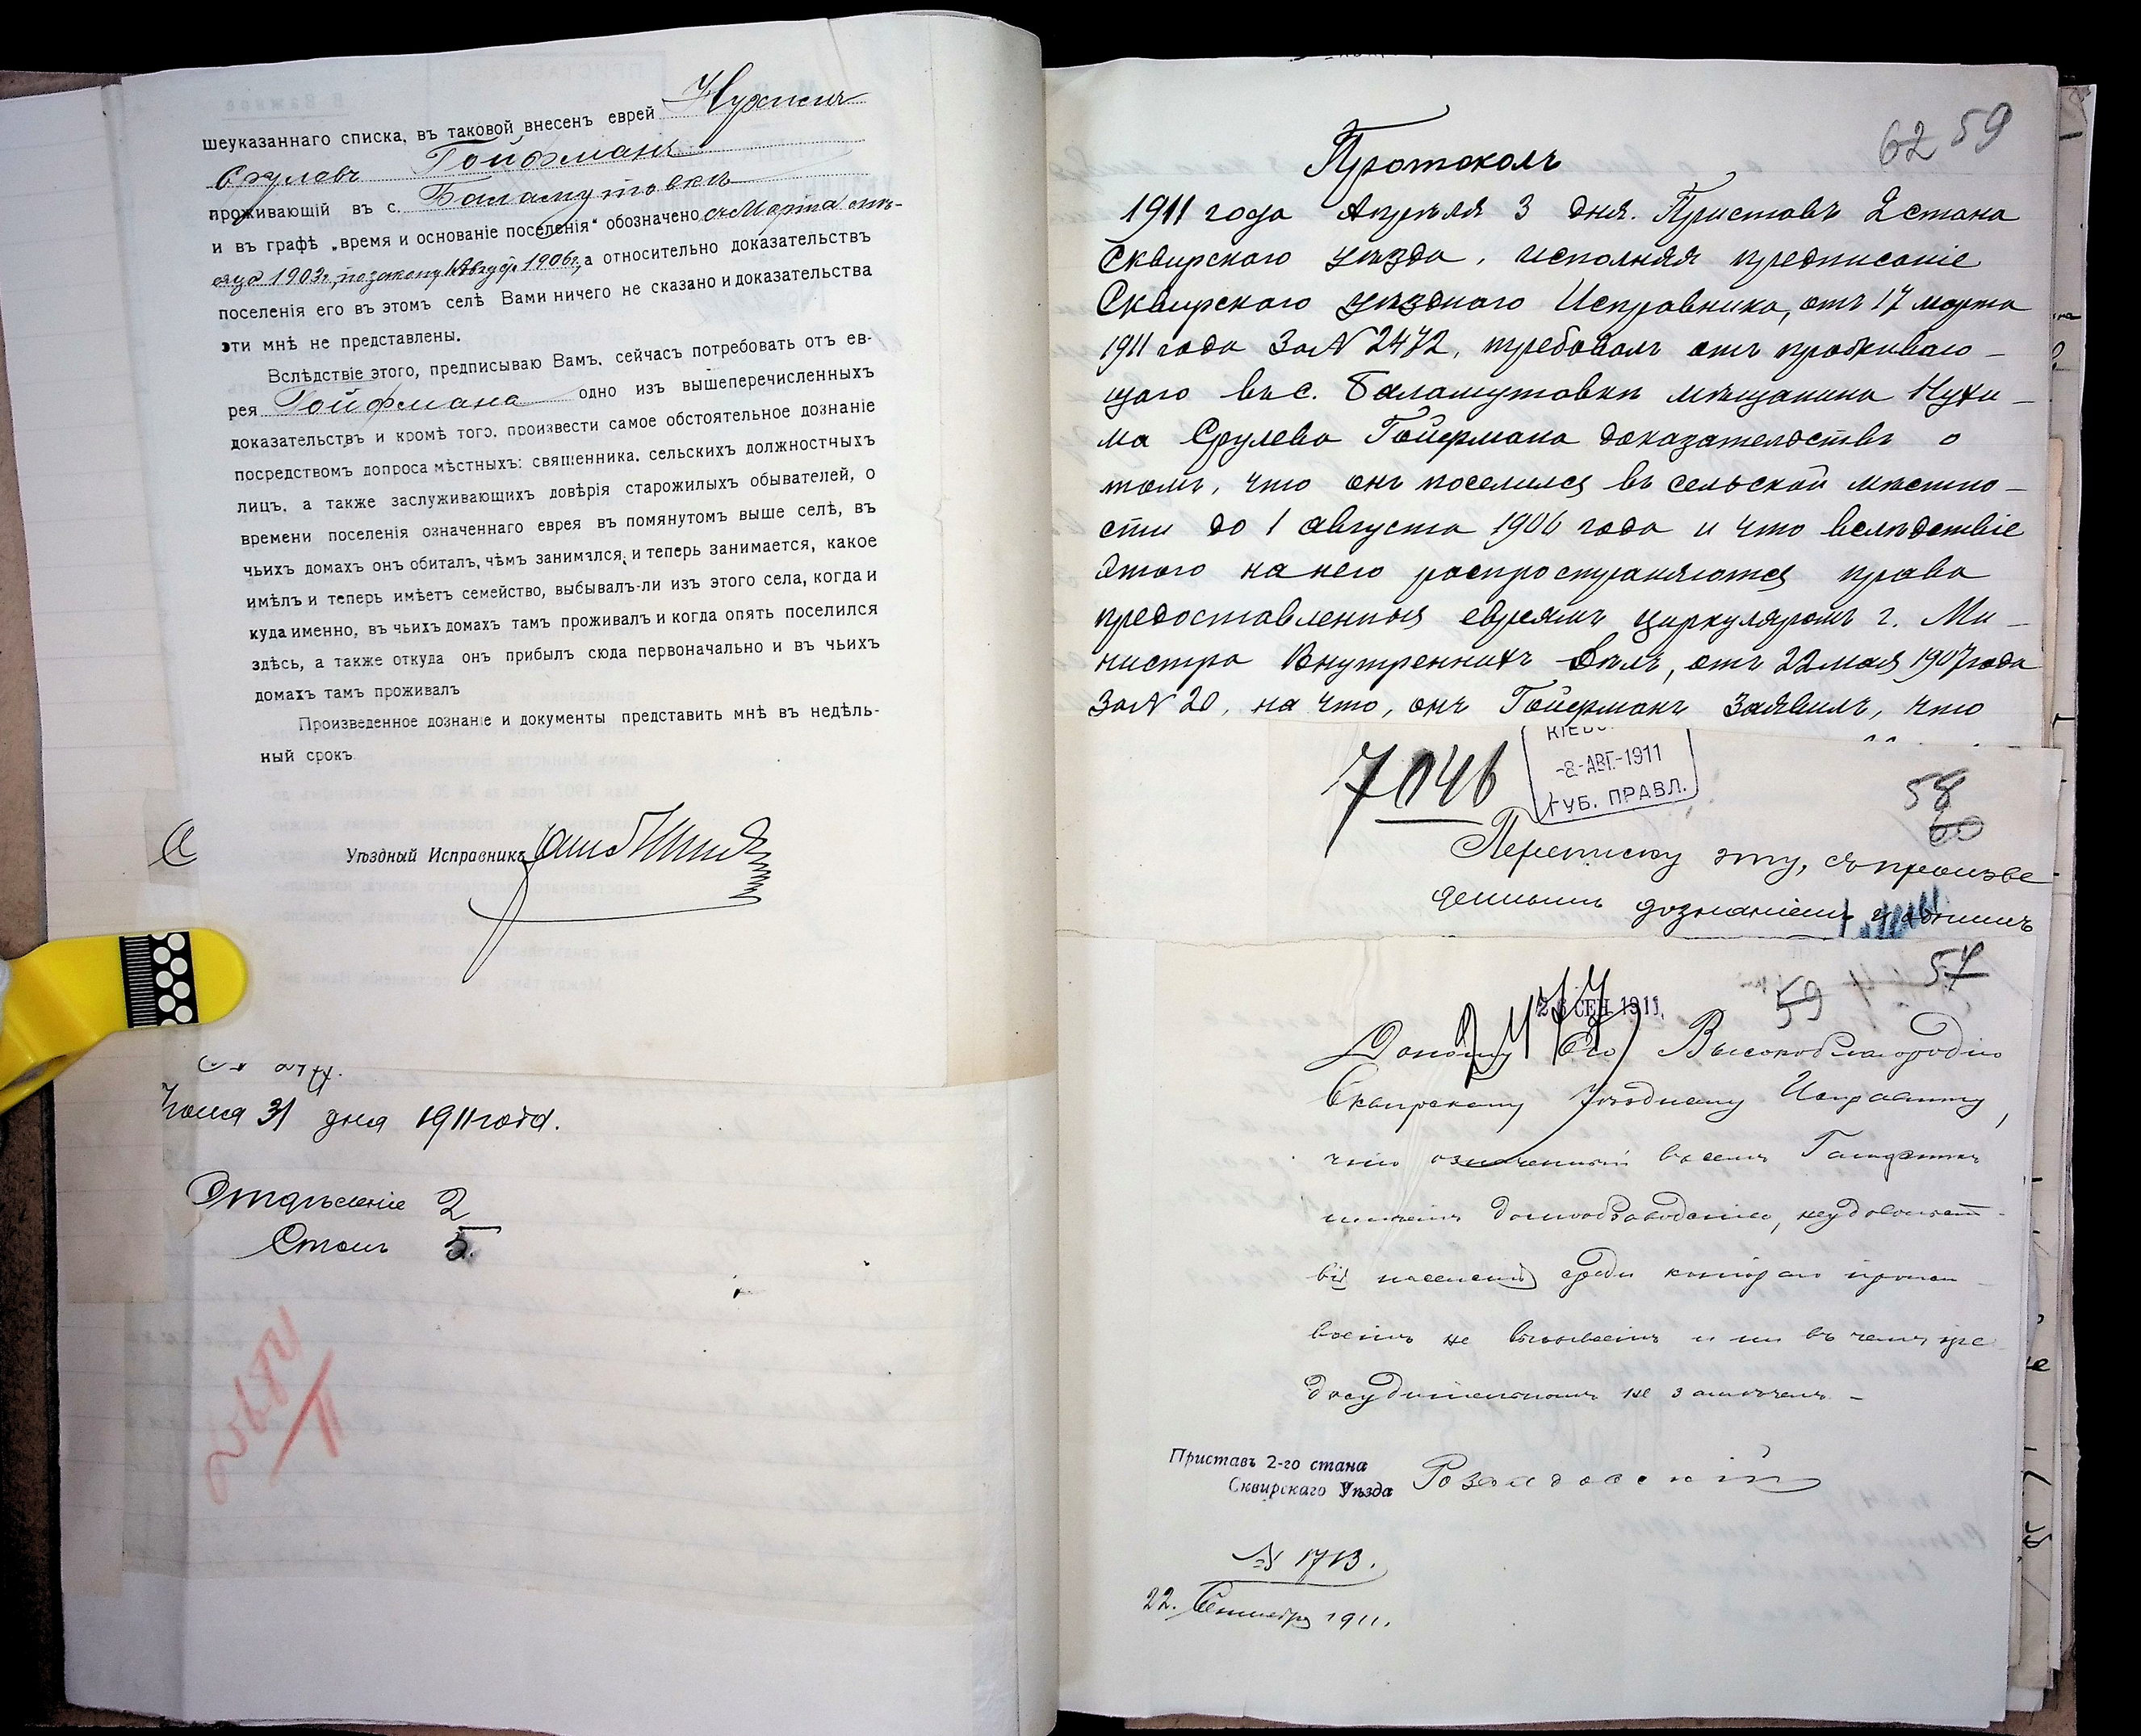 шеуказаннаго списка, въ таковой внесенъ еврей Нухимъ
Срулевъ Гойфманъ
проживающій въ с. Баламутовкѣ
и въ графѣ „время и основаніе поселенія“ обозначено съ Марта мѣ-
сяца 1903г, по закону 1 Август. 1906г., а относительно доказательствъ
поселенія его въ этомъ селѣ Вами ничего не сказано и доказательства
эти мнѣ не представлены.
Вслѣдствіе этого, предписываю Вамъ, сейчасъ потребовать отъ ев-
рея Гойфмана одно изъ вышеперечисленныхъ
доказательствъ и кромѣ того, произвести самое обстоятельное дознаніе
посредствомъ допроса мѣстныхъ: священника, сельскихъ должностныхъ
лицъ, а также заслуживающихъ довѣрія старожилыхъ обывателей, о
времени поселенія означеннаго еврея въ помянутомъ выше селѣ, въ
чьихъ домахъ онъ обиталъ, чѣмъ занимался, и теперь занимается, какое
имѣлъ и теперь имѣетъ семейство, выбывалъ-ли изъ этого села, когда и
куда именно, въ чьихъ домахъ тамъ проживалъ и когда опять поселился
здѣсь, а также откуда онъ прибылъ сюда первоначально и въ чьихъ
домахъ тамъ проживалъ
Произведенное дознаніе и документы представить мнѣ въ недѣль-
ный срокъ
Уѣздный Исправникъ
31 дня 1911 года.
Отдѣленіе 2
Столъ 5.
62 59
Протоколъ
1911 года Апрѣля 3 дня. Приставъ 2 стана
Сквирскаго уѣзда, исполняя предписаніе
Сквирскаго уѣзднаго Исправника, отъ 17 марта
1911 года За № 2472, требовалъ отъ проживаю-
щаго въ с. Баламутовкѣ мѣщанина Нухи-
ма Срулева Гойфмана доказательствъ о
томъ, что онъ поселился въ сельской мѣстно-
сти до 1 августа 1906 года и что вслѣдствіе
этого на него распространяются права
предоставленныя евреямъ циркуляромъ г. Ми-
нистра Внутреннихъ Дѣлъ, отъ 22 мая 1907 года
За № 20, на что, онъ Гойфманъ заявилъ, что
7046
-8-АВГ.-1911
ГУБ. ПРАВЛ.
58
60
Переписку эту, съ произве-
деннымъ дознаніемъ
57
59
26 СЕН. 1911
2477
Доношу Его Высокоблагородію
Сквирскому Уѣздному Исправнику,
что означенный
домообзаводство, неудовольст-
вія населенія среди котораго прожи-
ваетъ не вызываетъ и ни въ чемъ пре-
досудительномъ не замѣченъ.-
Приставъ 2-го стана
Сквирскаго Уѣзда
№ 1713.
22. Сентября 1911.